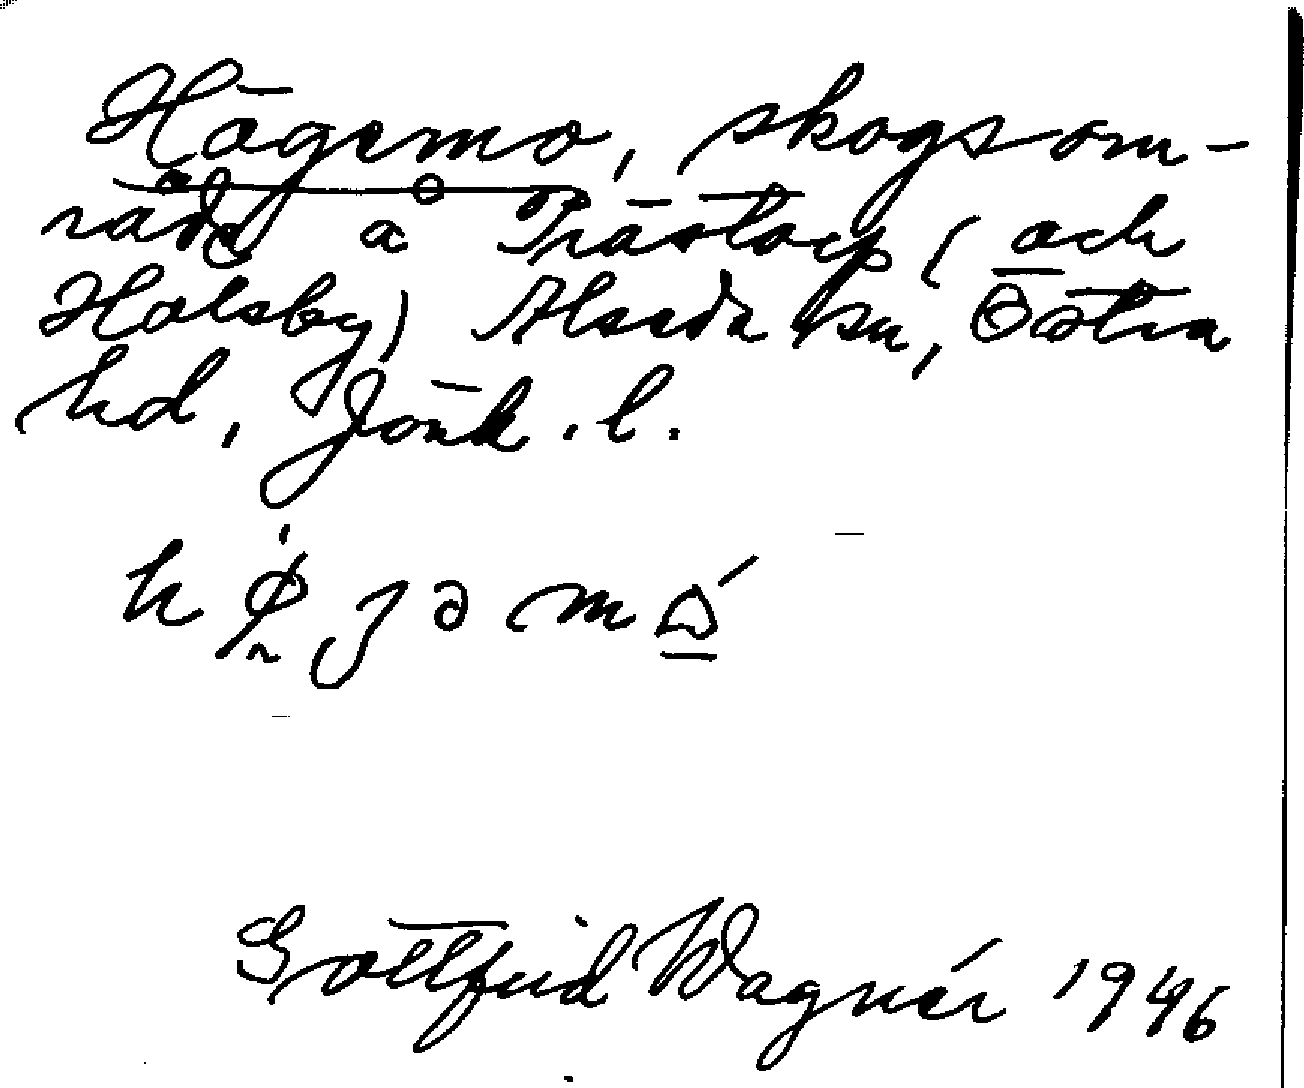 Hägemo, skogsom-
råde å Prästorp (och
Holsby) Alseda sn, Östra
hd, Jönk. l.
Gottfrid Wagnér 1946